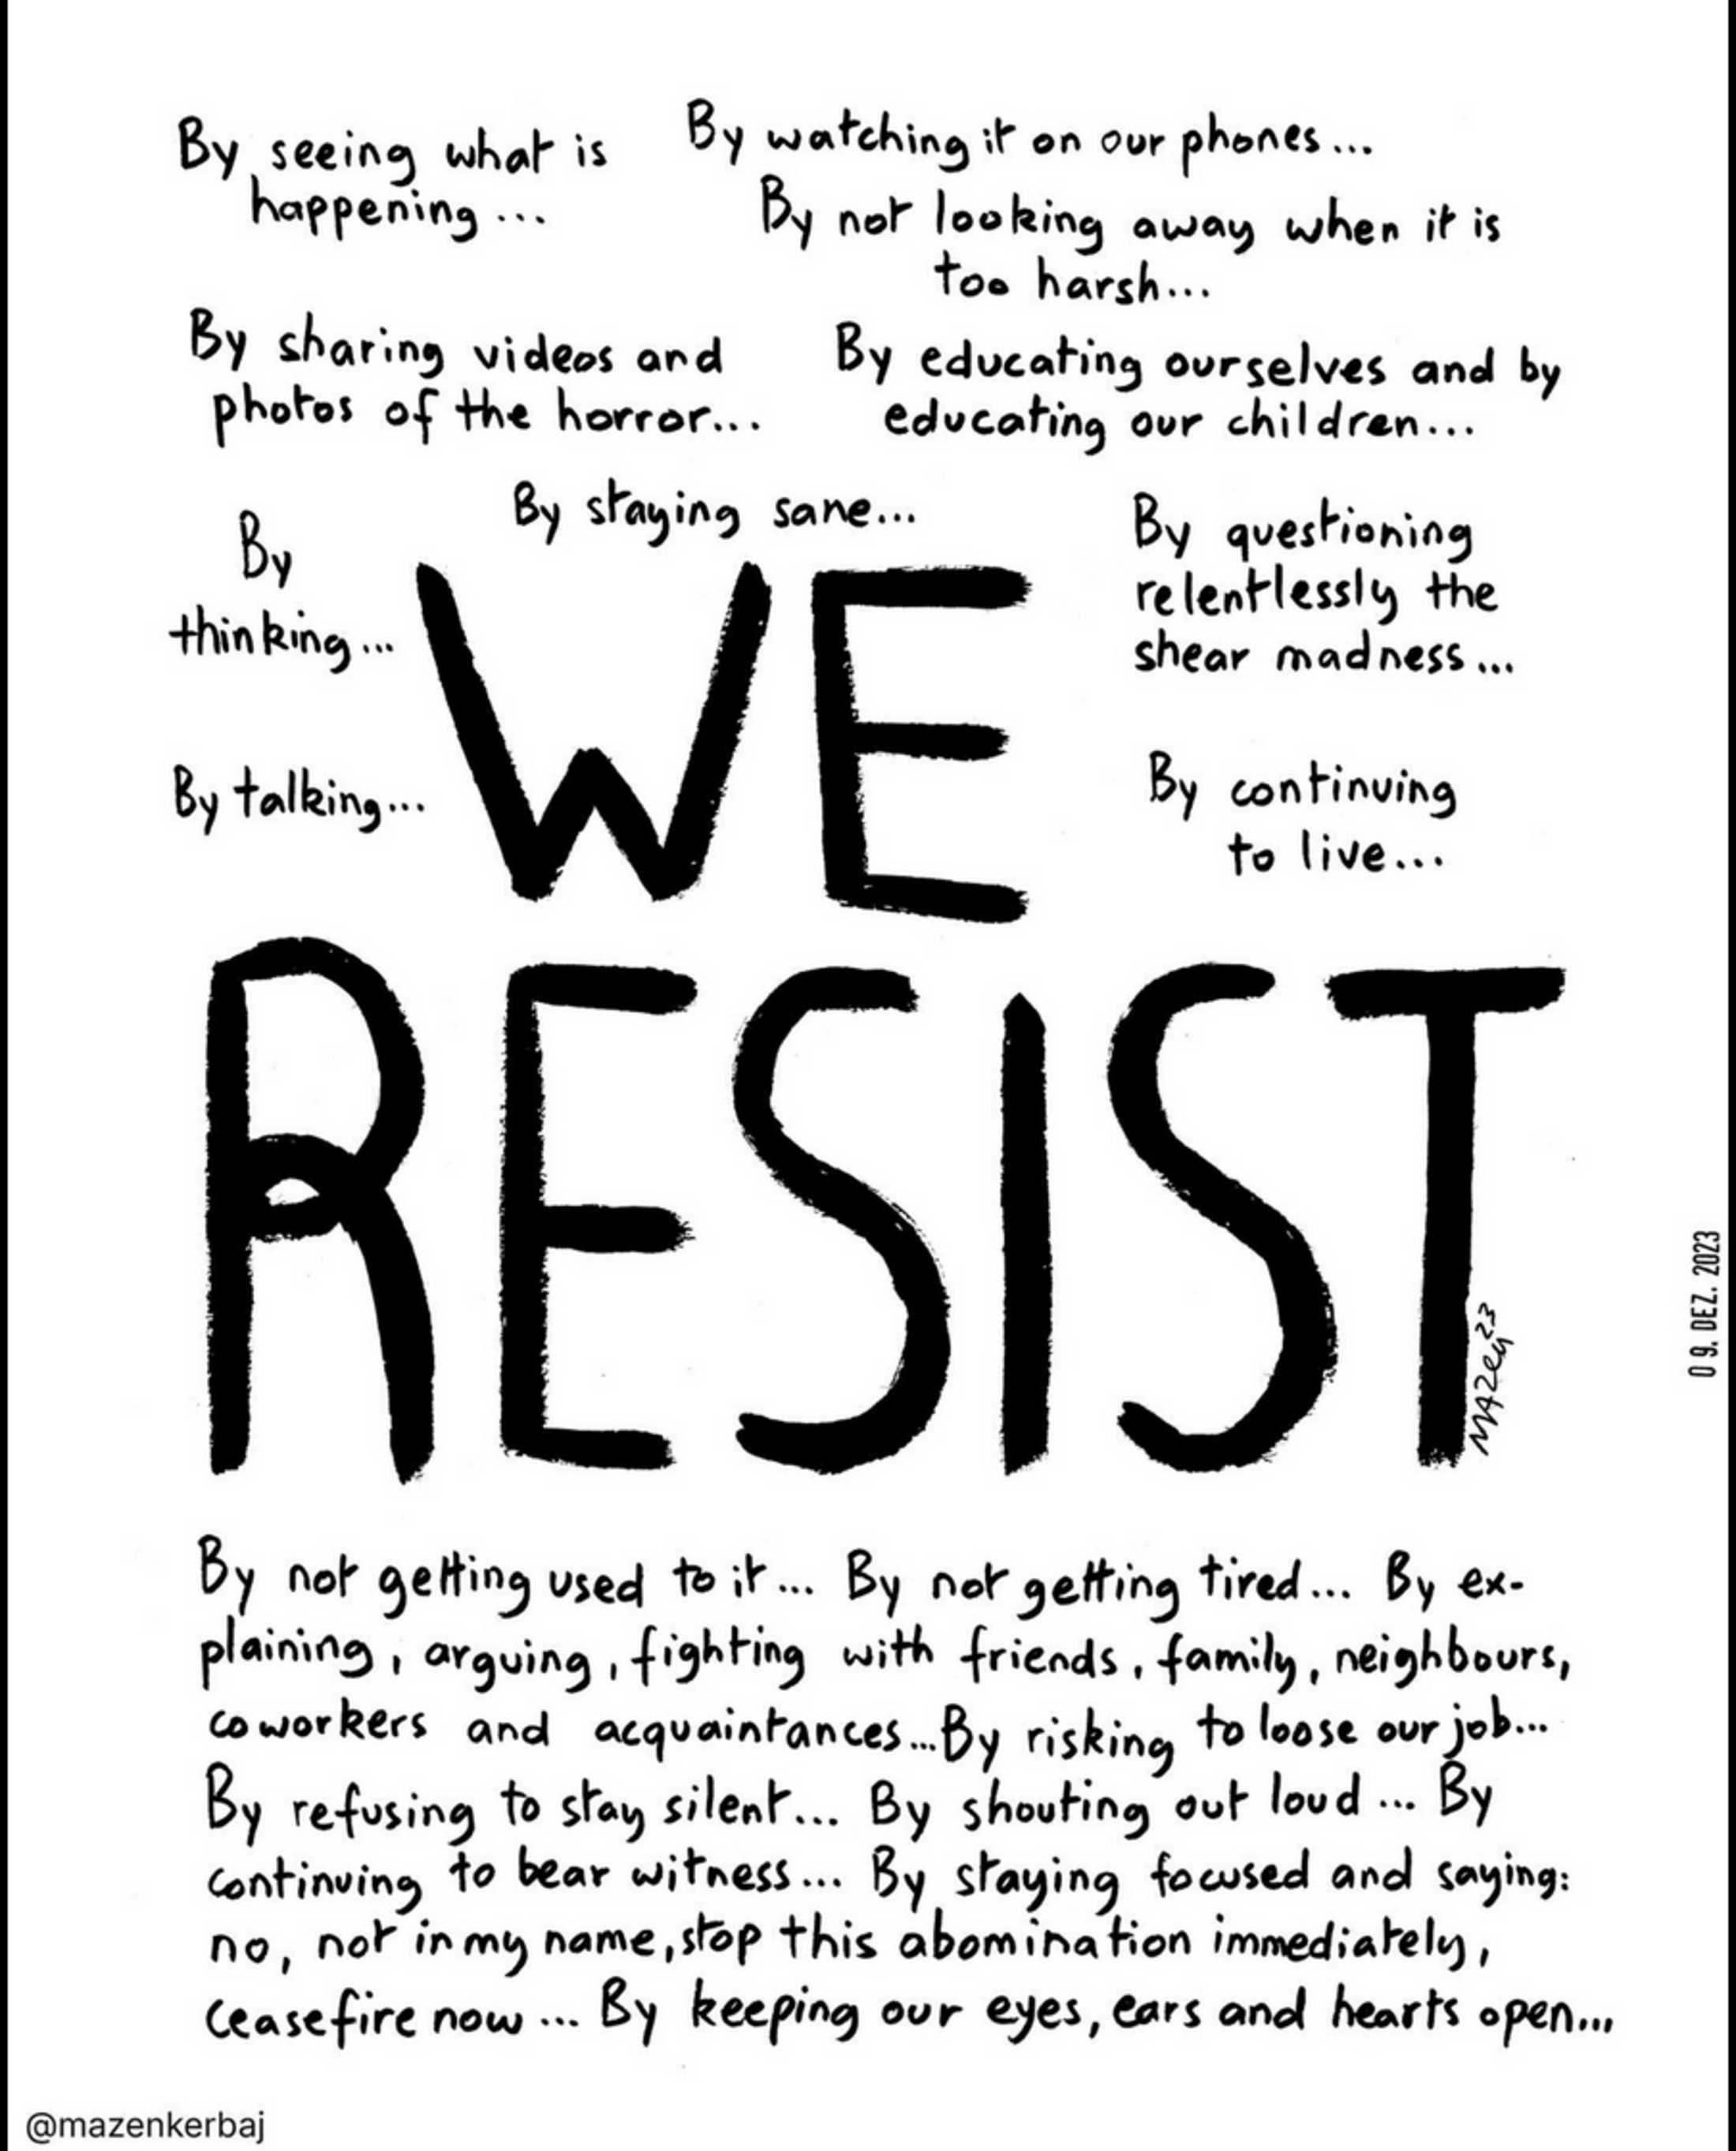 By seeing what is
happening...
By watching it on our phones...
By not looking away when it is
too harsh...
By sharing videos and
photos of the horror...
By educating ourselves and by
educating our children...
By staying sane...
By
thinking...
By questioning
relentlessly the
shear madness...
By talking...
By continuing
to live...
WE
RESIST
MAZEN 23
09. DEZ. 2023
By not getting used to it... By not getting tired... By ex-
plaining, arguing, fighting with friends, family, neighbours,
coworkers and acquaintances...By risking to loose our job...
By refusing to stay silent... By shouting out loud... By
continuing to bear witness... By staying focused and saying:
no, not in my name, stop this abomination immediately,
ceasefire now... By keeping our eyes, ears and hearts open...
@mazenkerbaj